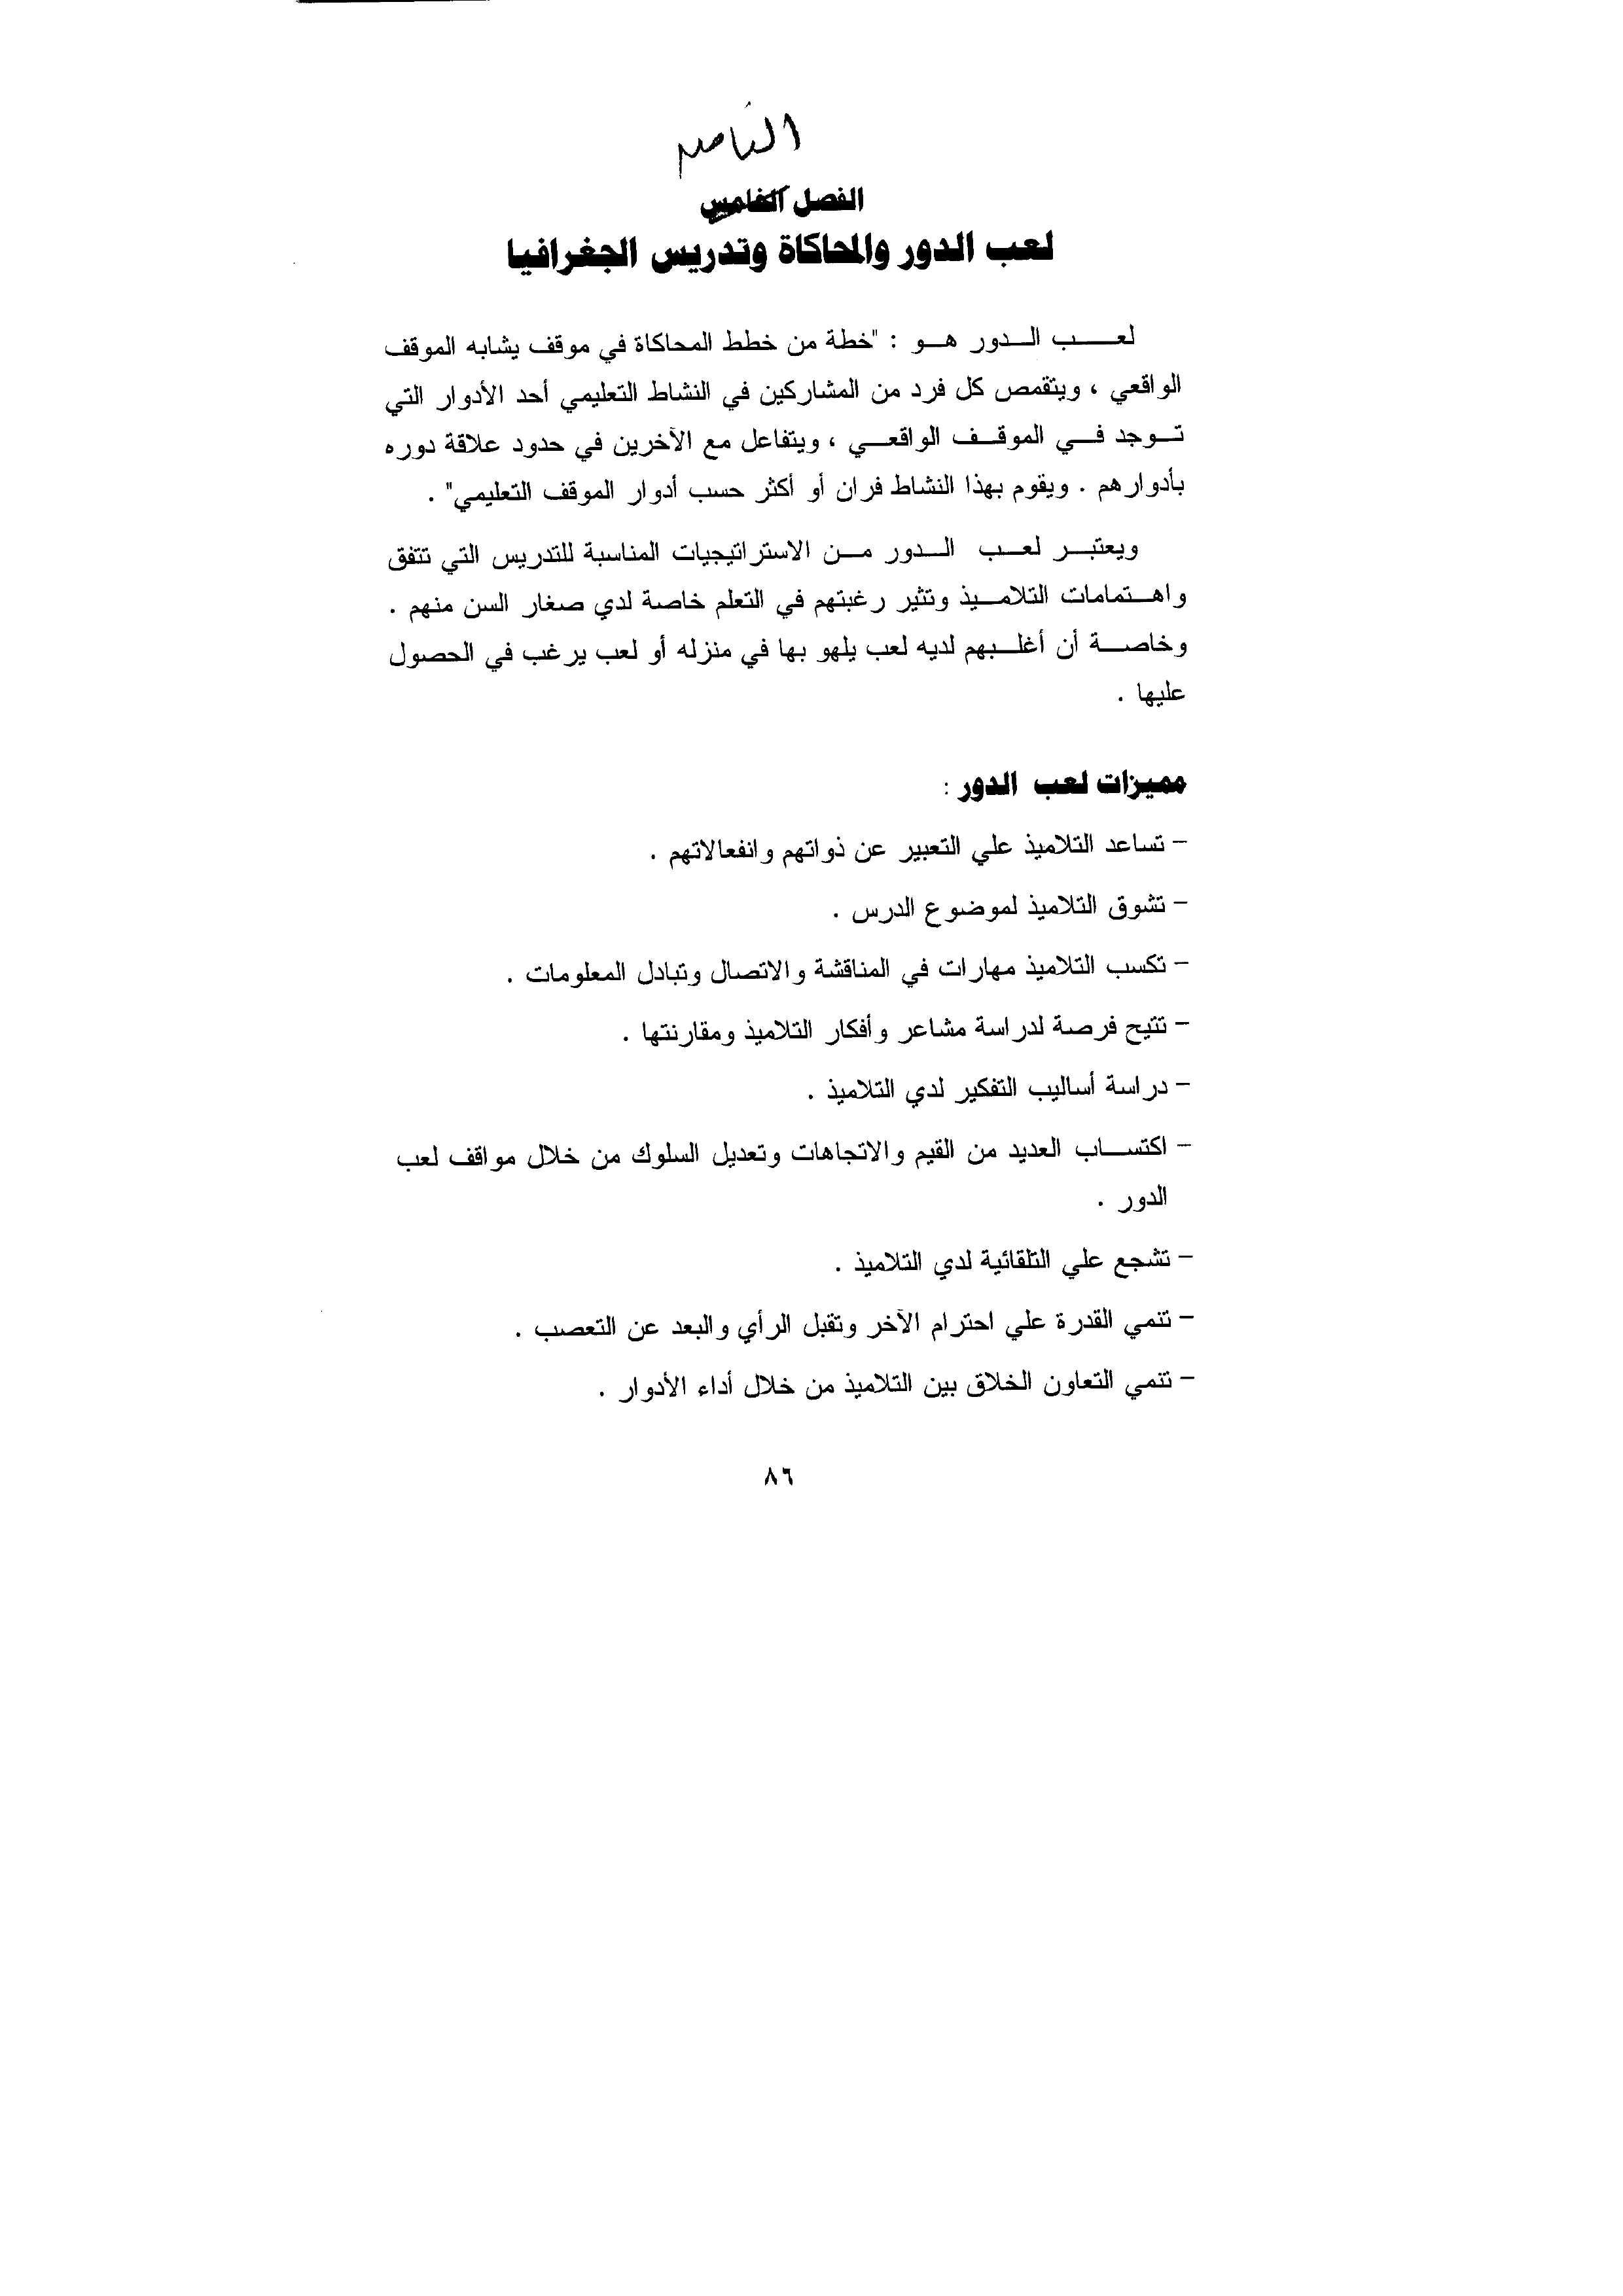 الثامن
الفصل الخامس
لعب الدور والمحاكاة وتدريس الجغرافيا
لعب الدور هو : "خطة من خطط المحاكاة في موقف يشابه الموقف
الواقعي ، ويتقمص كل فرد من المشاركين في النشاط التعليمي أحد الأدوار التي
توجد في الموقف الواقعي ، ويتفاعل مع الآخرين في حدود علاقة دوره
بأدوارهم . ويقوم بهذا النشاط فران أو أكثر حسب أدوار الموقف التعليمي" .
ويعتبر لعب الدور من الاستراتيجيات المناسبة للتدريس التي تتفق
واهتمامات التلاميذ وتثير رغبتهم في التعلم خاصة لدي صغار السن منهم .
وخاصة أن أغلبهم لديه لعب يلهو بها في منزله أو لعب يرغب في الحصول
عليها .
مميزات لعب الدور :
- تساعد التلاميذ علي التعبير عن ذواتهم وانفعالاتهم .
- تشوق التلاميذ لموضوع الدرس .
- تكسب التلاميذ مهارات في المناقشة والاتصال وتبادل المعلومات .
- تتيح فرصة لدراسة مشاعر وأفكار التلاميذ ومقارنتها .
- دراسة أساليب التفكير لدي التلاميذ .
- اكتساب العديد من القيم والاتجاهات وتعديل السلوك من خلال مواقف لعب
الدور .
- تشجع علي التلقائية لدي التلاميذ .
- تنمي القدرة علي احترام الآخر وتقبل الرأي والبعد عن التعصب .
- تنمي التعاون الخلاق بين التلاميذ من خلال أداء الأدوار .
٨٦